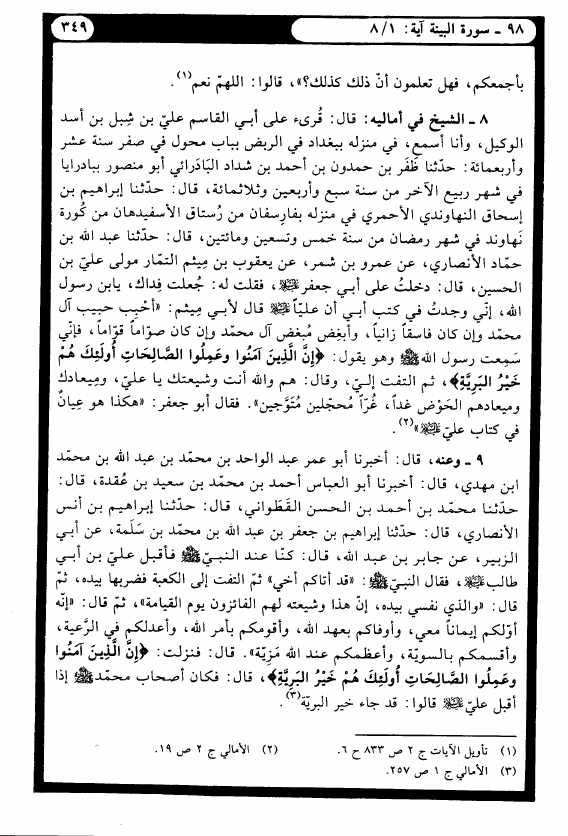 ٩٨ ـ سورة البينة آية: ٨/١
٣٤٩
بأجمعكم، فهل تعلمون أنّ ذلك كذلك؟»، قالوا: اللهمّ نعم(١).
٨ ـ الشيخ في أماليه: قال: قُرىء على أبي القاسم عليّ بن شِبل بن أسد
الوكيل، وأنا أسمع، في منزله ببغداد في الربض بباب محول في صفر سنة عشر
وأربعمائة: حدّثنا ظَفَر بن حمدون بن أحمد بن شداد البَادَرائي أبو منصور ببادرايا
في شهر ربيع الآخر من سنة سبع وأربعين وثلاثمائة، قال: حدّثنا إبراهيم بن
إسحاق النهاوندي الأحمري في منزله بفارِسفان من رُستاق الأسفيدهان من كُورة
نَهاوند في شهر رمضان من سنة خمس وتسعين ومائتين، قال: حدّثنا عبد الله بن
حمّاد الأنصاري، عن عمرو بن شمر، عن يعقوب بن مِيثم التمّار مولى عليّ بن
الحسين، قال: دخلتُ على أبي جعفر عليه السلام، فقلت له: جُعلت فِداك، يابن رسول
الله، إنّي وجدتُ في كتب أبي أن عليّاً عليه السلام قال لأبي مِيثم: «أحْبِب حبيب آل
محمّد وإن كان فاسقاً زانياً، وأبغض مُبغض آل محمّد وإن كان صوّاماً قوّاماً، فإنّي
سَمِعت رسول الله ﷺ وهو يقول: ﴿إِنَّ الَّذِينَ آمَنُوا وعَمِلُوا الصَّالِحَاتِ أُولَئِكَ هُمْ
خَيْرُ البَرِيَّةِ﴾، ثم التفت إليّ، وقال: هم والله أنت وشيعتك يا عليّ، ومِيعادك
وميعادهم الحَوْض غداً، غُرّاً مُحجّلين مُتَوَّجين». فقال أبو جعفر: «هكذا هو عِيانٌ
في كتاب عليّ عليه السلام»(٢).
٩ ـ وعنه، قال: أخبرنا أبو عمر عبد الواحد بن محمّد بن عبد الله بن محمّد
ابن مهدي، قال: أخبرنا أبو العباس أحمد بن محمّد بن سعيد بن عُقدة، قال:
حدّثنا محمّد بن أحمد بن الحسن القَطَواني، قال: حدّثنا إبراهيم بن أنس
الأنصاري، قال: حدّثنا إبراهيم بن جعفر بن عبد الله بن محمّد بن سَلَمة، عن أبي
الزبير، عن جابر بن عبد الله، قال: كنّا عند النبيّ ﷺ فأقبل عليّ بن أبي
طالب عليه السلام، فقال النبيّ ﷺ: «قد أتاكم أخي» ثمّ التفت إلى الكعبة فضربها بيده، ثمّ
قال: «والذي نفسي بيده، إنّ هذا وشيعته لهم الفائزون يوم القيامة»، ثمّ قال: «إنّه
أوّلكم إيماناً معي، وأوفاكم بعهد الله، وأقومكم بأمر الله، وأعدلكم في الرَّعية،
وأقسمكم بالسويّة، وأعظمكم عند الله مَزِيّة». قال: فنزلت: ﴿إِنَّ الَّذِينَ آمَنُوا
وعَمِلُوا الصَّالِحَاتِ أُولَئِكَ هُمْ خَيْرُ البَرِيَّةِ﴾، قال: فكان أصحاب محمّد ﷺ إذا
أقبل عليّ عليه السلام قالوا: قد جاء خير البريّة(٣).
(١) تأويل الآيات ج ٢ ص ٨٣٣ ح ٦.
(٢) الأمالي ج ٢ ص ١٩.
(٣) الأمالي ج ١ ص ٢٥٧.